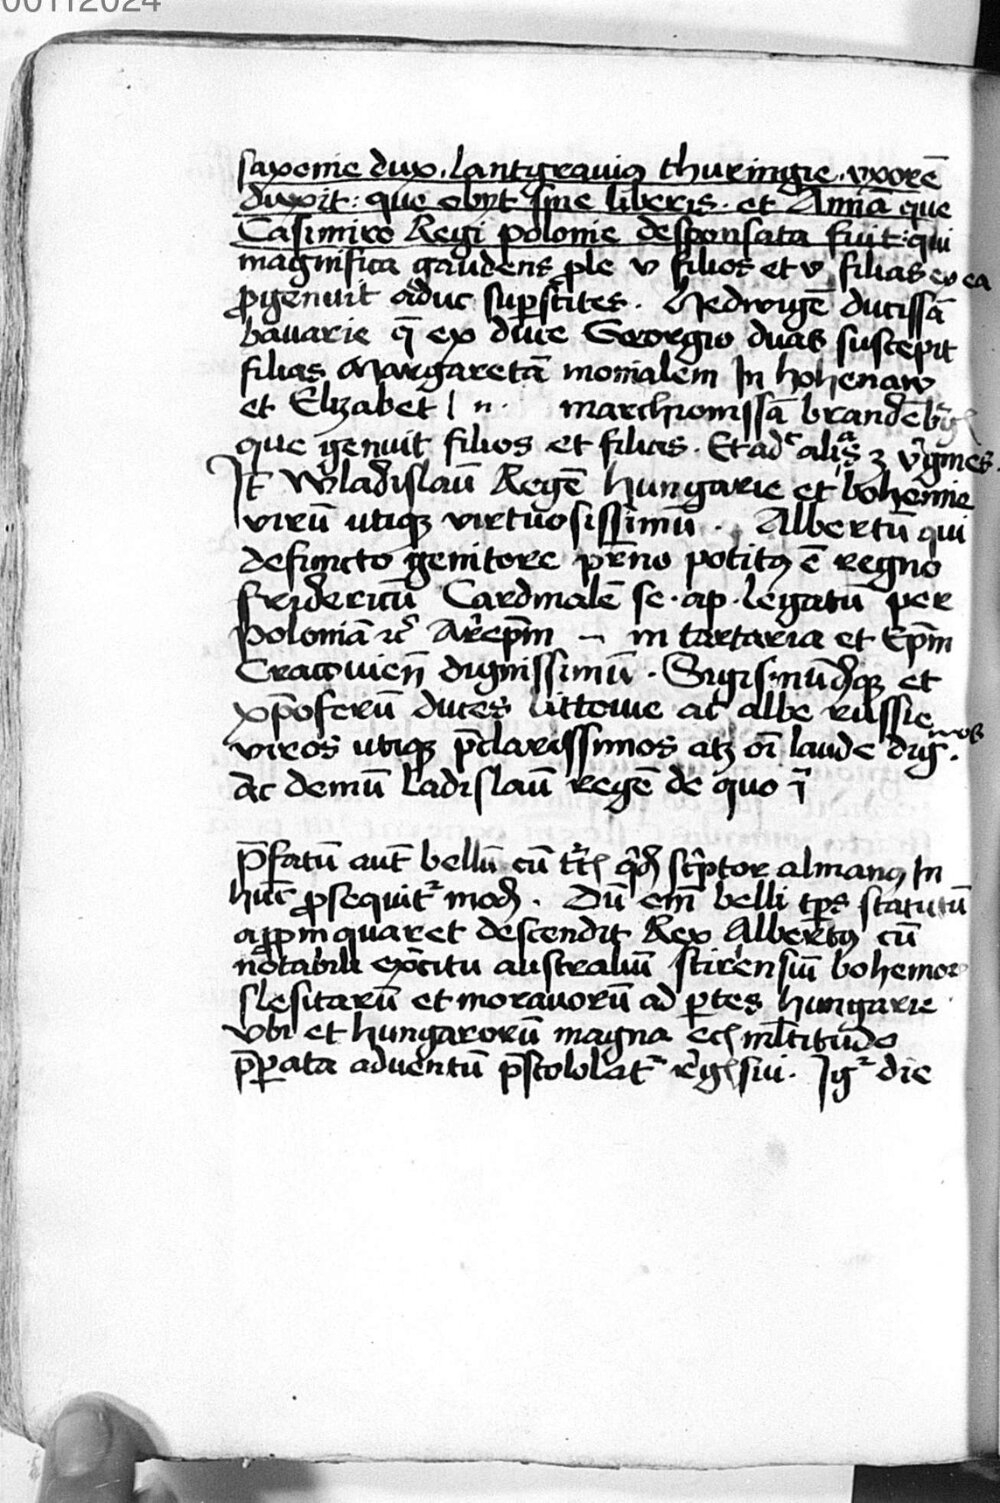 00112024
saxonie dux. lantgravius thuringie. uxorē
duxit: que obyt sine liberis. et Annā que
Casimiro Regi polonie desponsata fuit: qui
magnifica gaudens ple v filios et v filias ex ea
pgenuit aduc supstites. Hedwigē ducissā
bavarie q̄ ex duce Georgio duas suscepit
filias Margaretā monialem In hohenaw
et Elizabet marchionissā brandēbg
que genuit filios et filias. Et ad alias 3 v͛gines.
It Wladislaū Regē hungarie et bohemie
virū utiqꝫ virtuosissimū. Albertū qui
defuncto genitore pr̄no potitꝰ ē regno
fridericū Cardinalē se. ap. legatū per
Poloniā Arēpm̄ in tartaria et Epm̄
Cracovien̄ dignissimū. Sigismūdūqꝫ et
xp̄oferū duces littowie ac albe russie
viros utiqꝫ p̄clarissimos atqꝫ oī laude dig.mos
Ac demū ladislaū regē de quo ī
p̄fatū aut bellū cū scptor almanꝰ In
hūc psequit᷑ modū. Dū em̄ belli tp̄s statutū
appinquaret descendit Rex Albertꝰ cū
notabili exc̄itu australiū stirensiū bohemorꝫ
slesitarū et moravorū ad ptes hungarie
ubi et hungarorū magna ml̄titudo
p̄pata adventū p̄stololat᷑ reg sui. Ig᷑ die